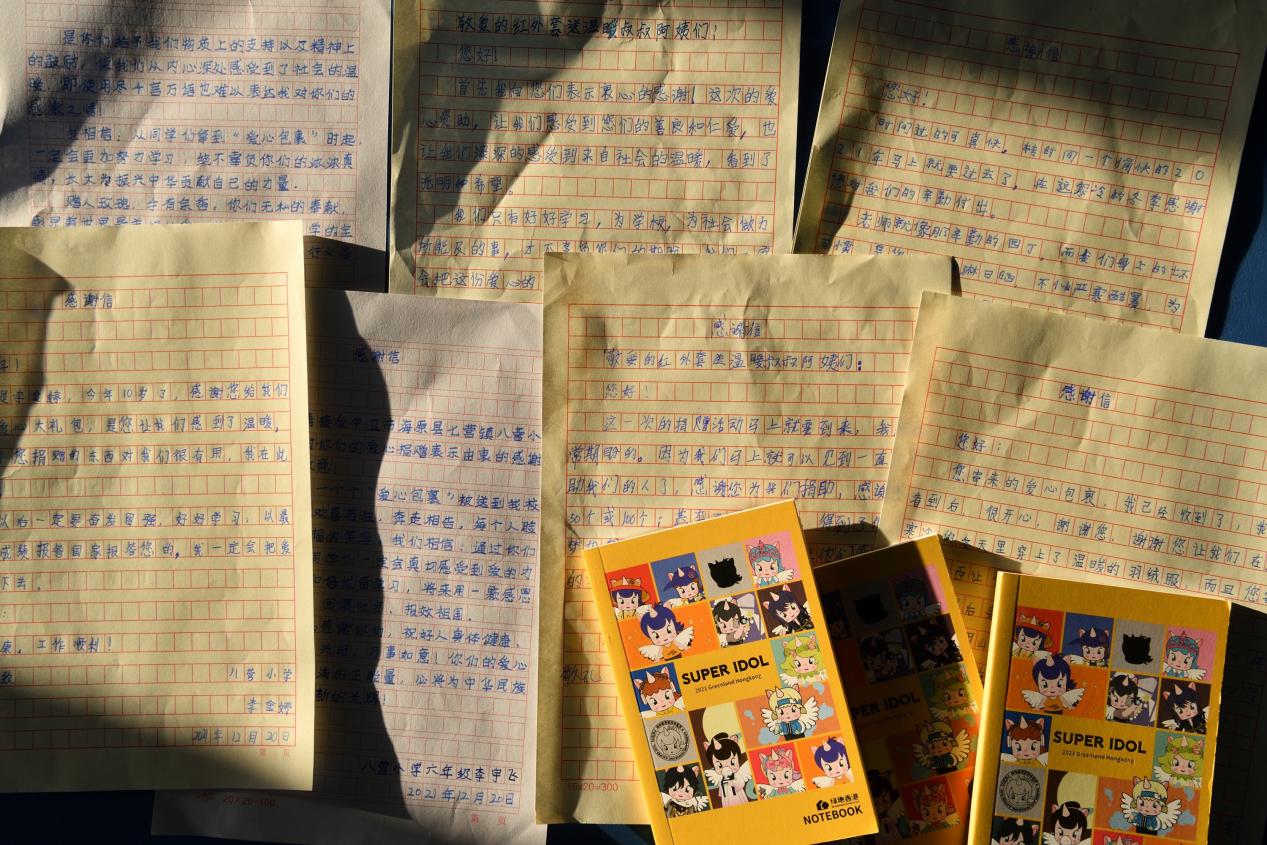 是你们给予我们物质上的支持以及精神上
的鼓励,使我们从内心深处感受到了社会的温
暖,即使用尽千言万语也难以表达我对你们的
感激之情!
相信,从同学们拿到“爱心包裹”时起,
一定会更加努力学习,绝不辜负你们的浓浓真
情,长大为振兴中华贡献自己的力量。
赠人玫瑰,手有余香,你们无私的奉献,
敬爱的红外套送温暖叔叔阿姨们:
您好!
首先是向您们表示衷心的感谢!这次的爱
心赞助,让我们感受到您们的善良和仁爱,也
让我们深深的感受到来自社会的温暖,看到了
光明和希望。
我们只有好好学习,为学校,为社会做力
所能及的事,才不辜负您们的期望
会把这份爱心的
感谢信
您好!
时间过的可真快,转时间一个愉快的20
21年马上就要过去了,在这寒冷的冬季感谢
您对我们的辛勤付出。
老师就像那辛勤的园丁,而我们身上的坏
不怕严寒酷暑,为
感谢信
好!
今年10岁了,感谢您给我们
爱心大礼包,是您让我们感到了温暖,
您捐赠的东西对我们很有用,我在此
以后一定要奋发图强,好好学习,以最
成绩报答国家报答您的,我一定会把爱
下去。
康,工作顺利!
八营小学
李金婷
2021年12月20日
感谢信
中卫市海原县七营镇八营小
对你们的爱心捐赠表示由衷的感谢
“爱心包裹”被送到我校
奔走相告,每个人脸
我们相信,通过你们
一定会真切感受到爱的力
学习,将来用一颗感恩
回馈社会、报效祖国。
感谢你们,祝好人身体健康、
万事如意!你们的爱心
正能量,必将为中华民族
八营小学六年级李甲飞
2021年12月20日
20×20=400
第 页
感谢信
敬爱的红外套送温暖叔叔阿姨们:
您好!
这一次的捐赠活动马上就要到来,我
常期盼的。因为我们马上就可以见到一直
助我们的人了,感谢您为我们捐助,感谢
50个或100个;
15×20=300
感谢信
您好:
您寄来的爱心包裹,我已经收到了,我
看到后,很开心,谢谢您,谢谢您让我们在
寒冷的冬天里穿上了温暖的羽绒服,而且您
SUPER IDOL
2021 Greenland Hongkong
绿地香港
NOTEBOOK
PER IDOL
SUPER IDOL
2021 Greenland Hongkong